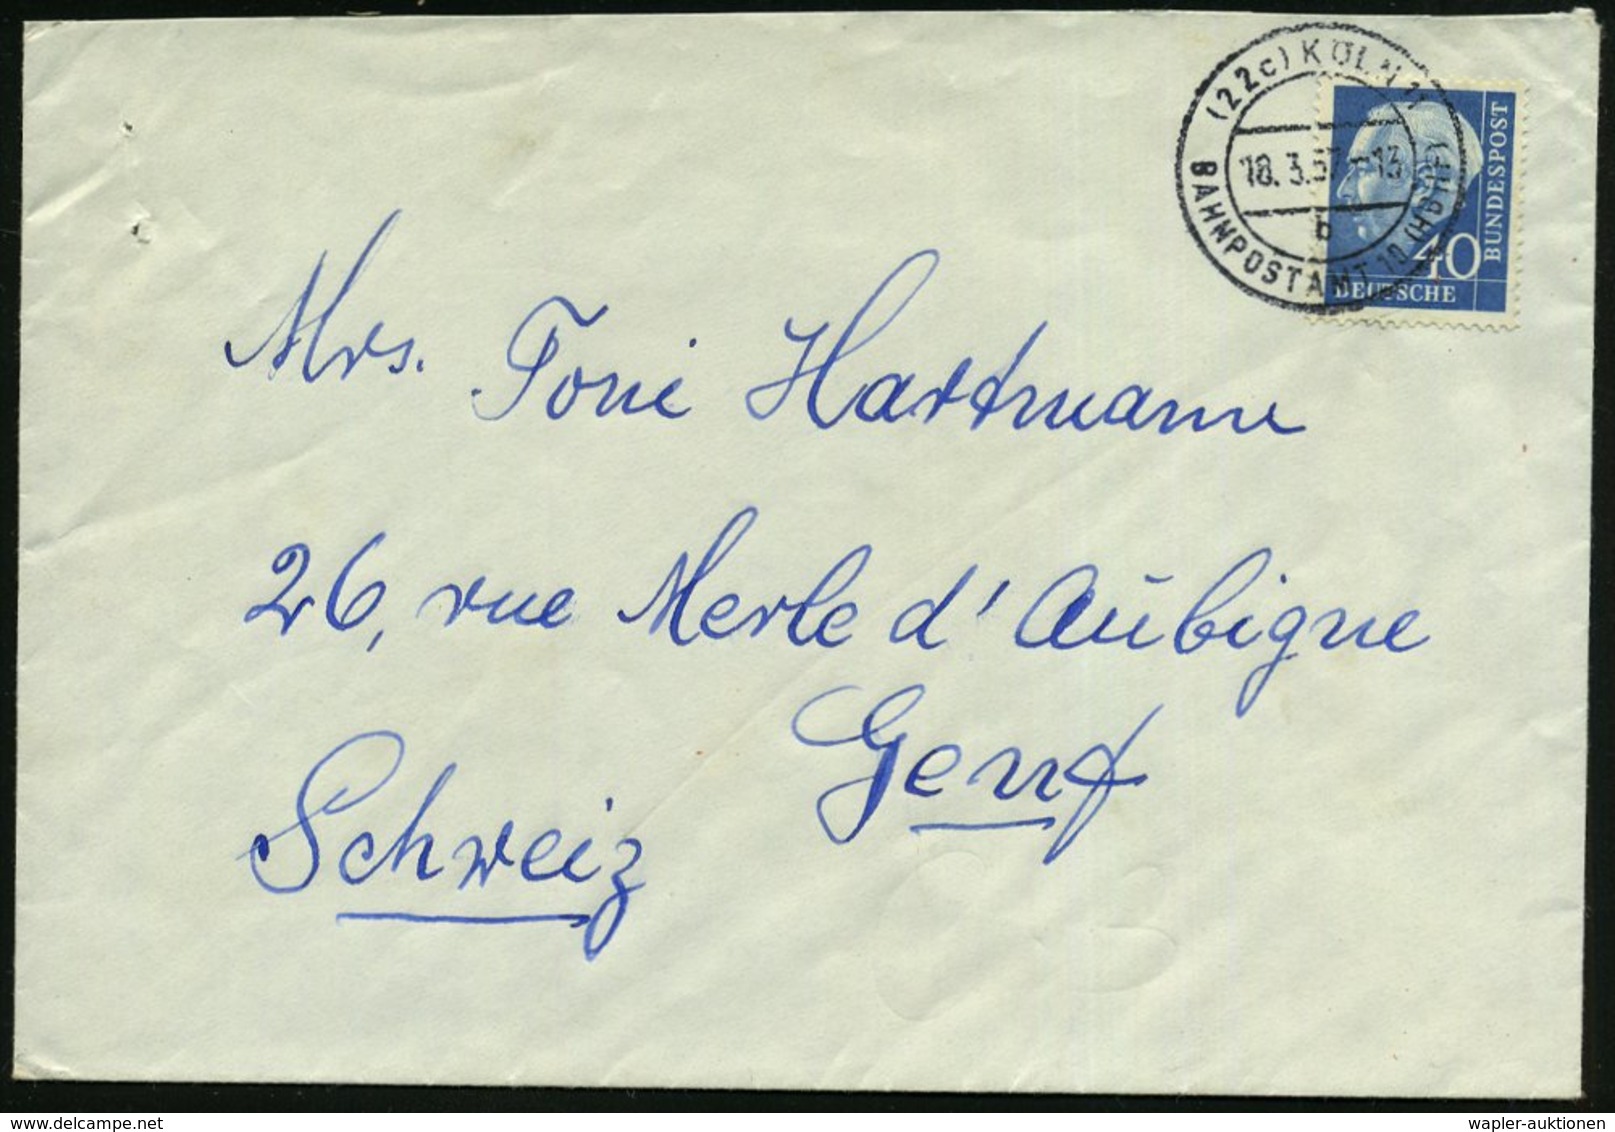 (22c) KÖLN 11
18. 3.57.-13
b
BAHNPOSTAMT 10 (HBHF)
BUNDESPOST
40
DEUTSCHE
Mrs. Toni Hartmann
26, rue Merle d'Aŭbigne
Genf
Schweiz
wapler-auktionen